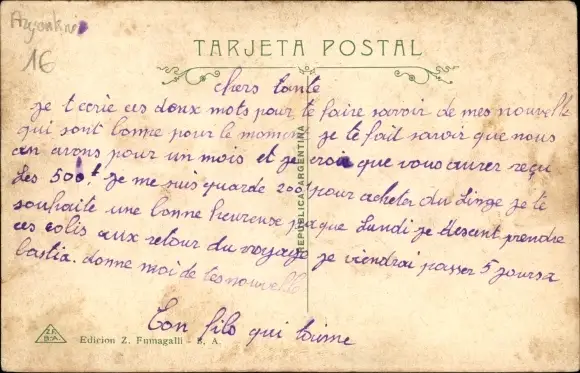 Argentine
16
TARJETA POSTAL
chers tante
je t ecrie ces doux mots pour te faire savoir de mes nouvelle
qui sont bonne pour le moment je te fait savoir que nous
en avons pour un mois et je croi que vous aurer reçu
Les 500f. je me suis quarde 200f pour acheter du Linge je te
souhaite une bonne heureuse paque Lundi je descent prendre
ces colis aux retour du voyage je viendrai passer 5 jours a
bastia. donne moi de tes nouvelle
Ton filo qui t'aime
REPÚBLICA ARGENTINA
Z.F.
B.A.
Edicion Z. Fumagalli - B. A.